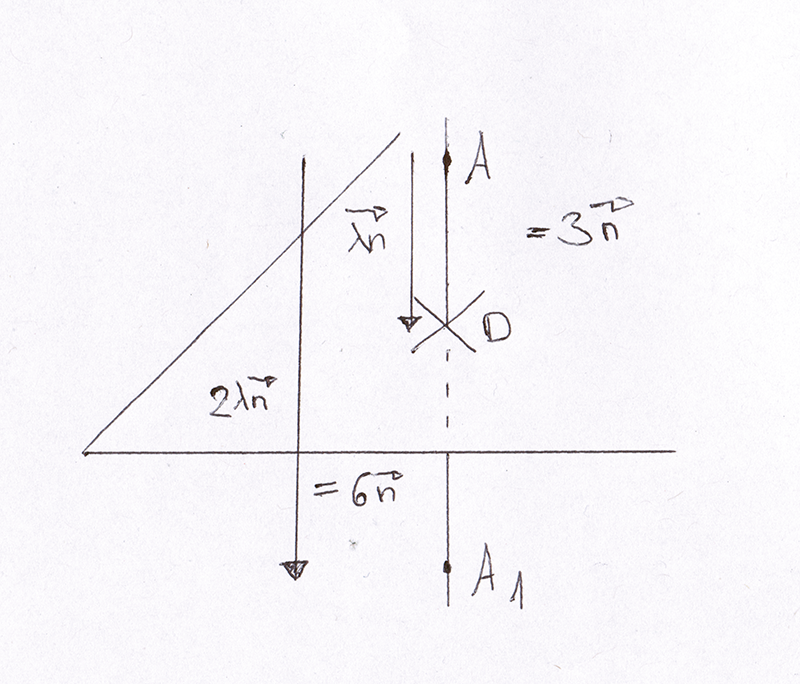 A
λn⃗
= 3n⃗
D
2λn⃗
= 6n⃗
A₁